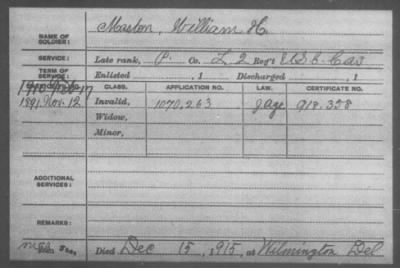 NAME OF SOLDIER: Maston, William H.
SERVICE: Late rank, P. Co. L, 2 Reg't U.S.C. Cav
TERM OF SERVICE: Enlisted , 1 Discharged , 1
CLASS. APPLICATION NO. LAW. CERTIFICATE NO.
1891 Nov. 12 Invalid, 1070.263 J 918.338
Widow,
Minor,
ADDITIONAL SERVICES:
REMARKS:
Died Dec 15, 1915, at Wilmington Del